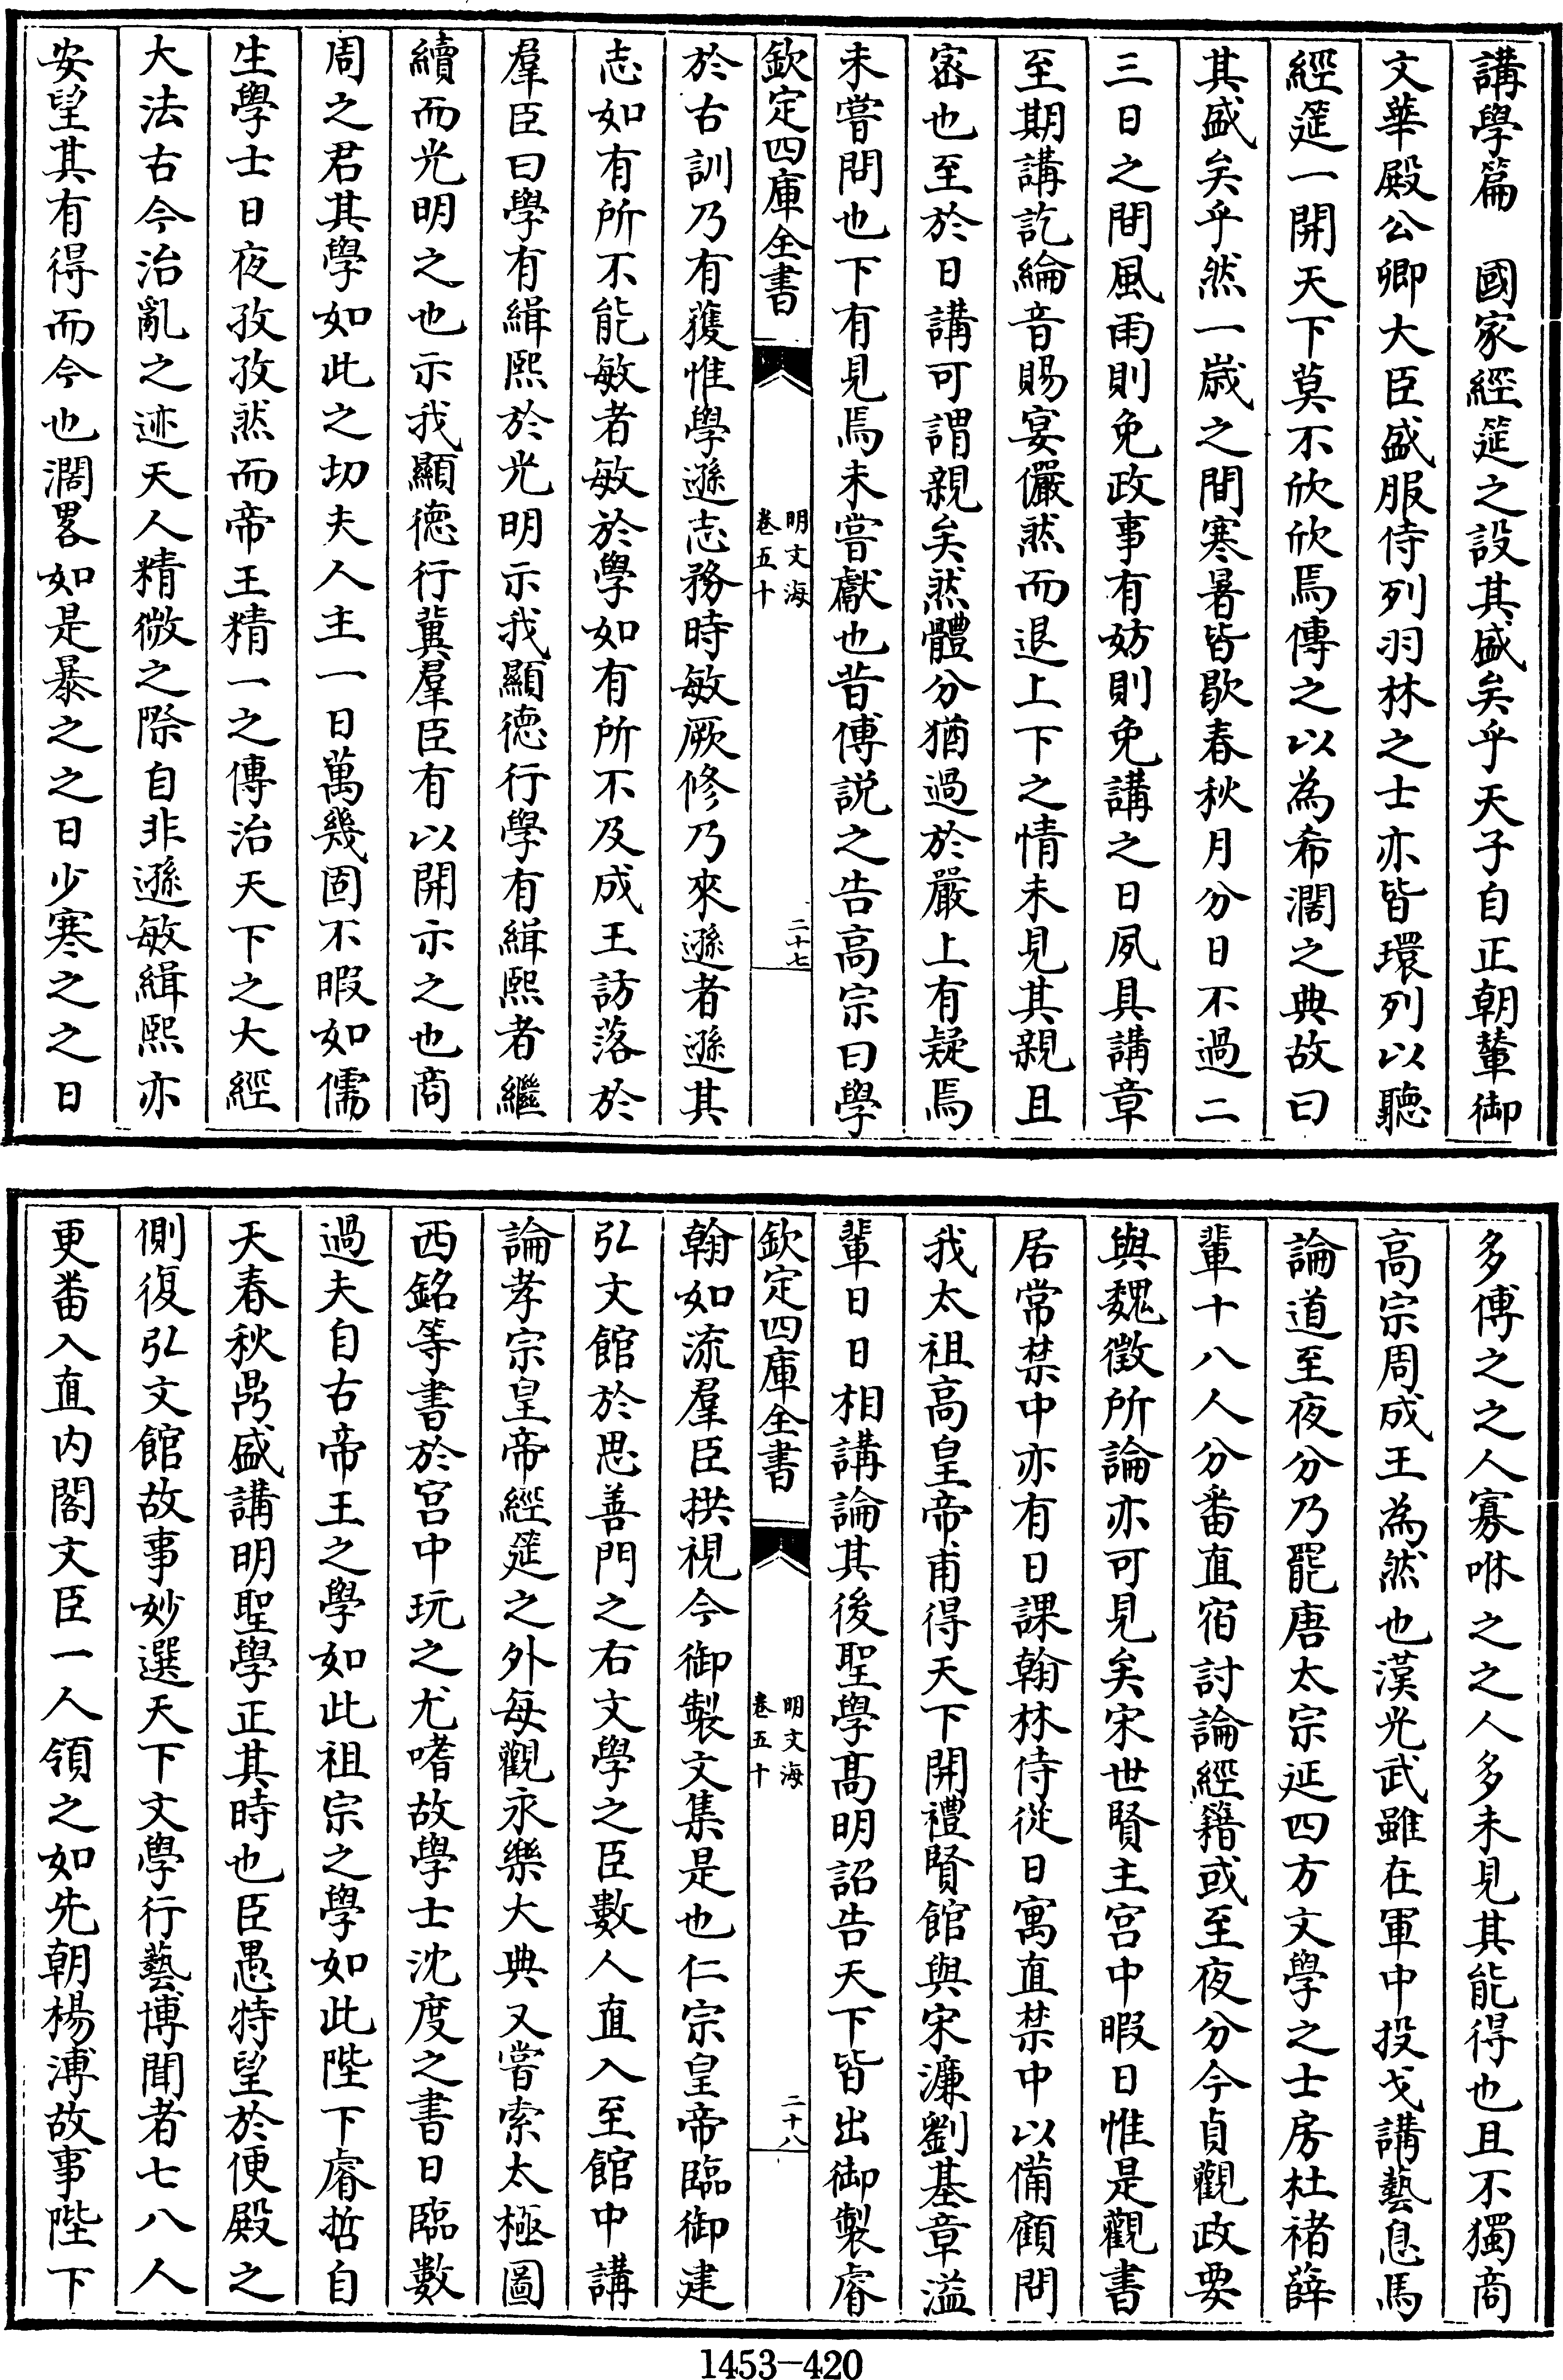 講學篇　國家經筵之設其盛矣乎天子自正朝輦御
文華殿公卿大臣盛服侍列羽林之士亦皆環列以聽
經筵一開天下莫不欣欣焉傳之以為希濶之典故曰
其盛矣乎然一嵗之間寒暑皆歇春秋月分日不過二
三日之間風雨則免政事有妨則免講之日夙具講章
至期講訖綸音賜宴儼然而退上下之情未見其親且
宻也至於日講可謂親矣然體分猶過於嚴上有疑焉
未嘗問也下有見焉未嘗獻也昔傅説之告高宗曰學
欽定四庫全書
明文海
卷五十
二十七
於古訓乃有獲惟學遜志務時敏厥修乃來遜者遜其
志如有所不能敏者敏於學如有所不及成王訪落於
羣臣曰學有緝熙於光明示我顯德行學有緝熙者繼
續而光明之也示我顯德行冀羣臣有以開示之也商
周之君其學如此之切夫人主一日萬幾固不暇如儒
生學士日夜孜孜然而帝王精一之傳治天下之大經
大法古今治亂之迹天人精微之際自非遜敏緝熙亦
安望其有得而今也濶畧如是暴之之日少寒之之日
多傅之之人寡咻之之人多未見其能得也且不獨商
高宗周成王為然也漢光武雖在軍中投戈講藝息馬
論道至夜分乃罷唐太宗延四方文學之士房杜褚薛
輩十八人分番直宿討論經籍或至夜分今貞觀政要
與魏徵所論亦可見矣宋世賢主宫中暇日惟是觀書
居常禁中亦有日課翰林侍從日寓直禁中以備顧問
我太祖高皇帝甫得天下開禮賢館與宋濂劉基章溢
輩日日相講論其後聖學髙明詔告天下皆出御製睿
欽定四庫全書
明文海
卷五十
二十八
翰如流羣臣拱視今御製文集是也仁宗皇帝臨御建
弘文館於思善門之右文學之臣數人直入至館中講
論孝宗皇帝經筵之外每觀永樂大典又嘗索太極圖
西銘等書於宫中玩之尤嗜故學士沈度之書日臨數
過夫自古帝王之學如此祖宗之學如此陛下睿哲自
天春秋鼎盛講明聖學正其時也臣愚特望於便殿之
側復弘文館故事妙選天下文學行藝博聞者七八人
更番入直内閣文臣一人領之如先朝楊溥故事陛下
1453-420